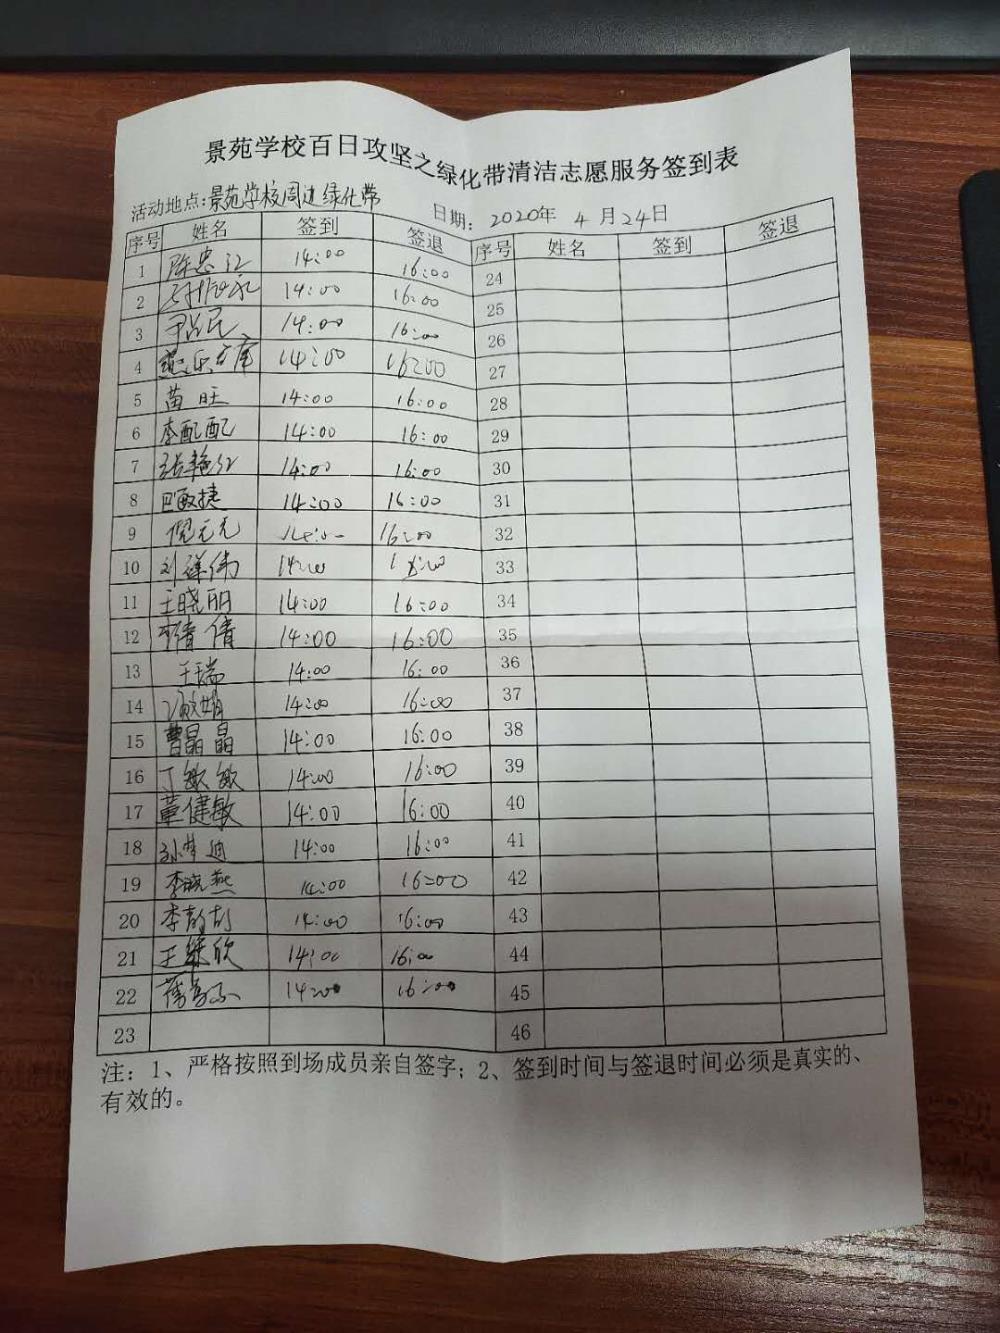 景苑学校百日攻坚之绿化带清洁志愿服务签到表
活动地点:景苑学校周边绿化带 日期: 2020年 4月24日
序号 姓名 签到 签退 序号 姓名 签到 签退
1 14:00 16:00 24
2 14:00 16:00 25
3 14:00 16:00 26
4 14:00 16:00 27
5 苗旺 14:00 16:00 28
6 李配配 14:00 16:00 29
7 张艳红 14:00 16:00 30
8 敏捷 14:00 16:00 31
9 倪元元 14:00 16:00 32
10 刘祥伟 14:00 16:00 33
11 王晓丽 14:00 16:00 34
12 李倩倩 14:00 16:00 35
13 王瑞 14:00 16:00 36
14 14:00 16:00 37
15 曹晶晶 14:00 16:00 38
16 丁敏敏 14:00 16:00 39
17 董健敏 14:00 16:00 40
18 孙梦迪 14:00 16:00 41
19 李晓燕 14:00 16:00 42
20 14:00 16:00 43
21 14:00 16:00 44
22 14:00 16:00 45
23 46
注: 1、严格按照到场成员亲自签字; 2、签到时间与签退时间必须是真实的、
有效的。